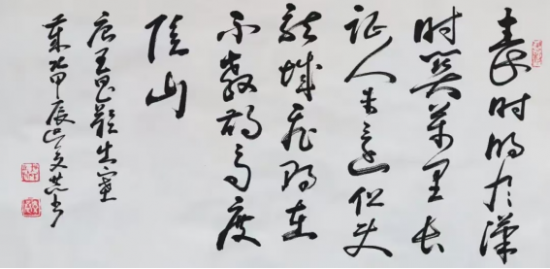 秦时明月汉
时关万里长
征人未还但使
龙城飞将在
不教胡马度
阴山
唐王昌龄出塞
甲辰 书